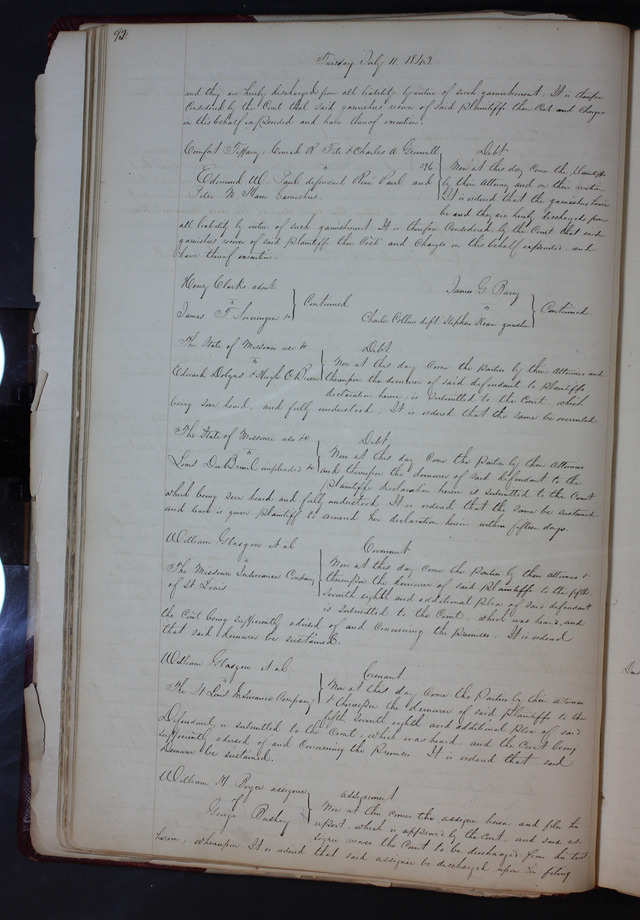 92
Tuesday July 11. 1843
and they are hereby discharged from all liability by virtue of such garnishment. It is therefore
Considered by the Court that said garnishees recover of said Plaintiffs their Cost and Charges
in this behalf expended and have thereof execution.
Comfort Tiffany, Conrad R Fite & Charles A Grinnell Debt
vs 396 Now at this day come the plaintiffs
Edmund W. Paul defendant Rene Paul and by their Attorney and on their motion
Peter N. Ham Garnishees It is ordered that the garnishees herein
be and they are hereby discharged from
all liability by virtue of such garnishment. It is therefore Considered by the Court that said
garnishees recover of said Plaintiffs their Cost and Charges in this behalf expended and
have thereof execution.
Henry Clarke admr James G. Barry
vs Continued vs Continued
James T. Swearingen Charles Collins deft. Stephen garnishee
The State of Missouri use &c Debt
vs Now at this day Come the Parties by their Attornies and
Edward Dobyns & Hugh O'Brien thereupon the demurrer of said defendants to plaintiffs
declaration herein, is Submitted to the Court which
being seen heard, and fully understood. It is ordered that the same be overruled.
The State of Missouri use &c Debt
vs Now at this day Come the Parties by their Attornies
Louis DuBreuil impleaded &c and thereupon the demurrer of said defendant to the
plaintiffs declaration herein is submitted to the Court
which being seen heard and fully understood. It is ordered that the same be sustained
and leave is given Plaintiff to amend her declaration herein within fifteen days.
William Glasgow et al Covenant
vs Now at this day Come the Parties by their Attornies &
The Missouri Insurance Company thereupon the demurrer of said Plaintiffs to the fifth,
of St Louis Seventh eighth and additional Pleas of said defendant
is Submitted to the Court. which was heard, and
the Court being sufficiently advised of and Concerning the Premises. It is ordered
that said demurrer be sustained.
William Glasgow et al Covenant
vs Now at this day Come the Parties by their Attornies
The St Louis Insurance Company & thereupon the demurrer of said Plaintiffs to the
fifth Seventh eighth and additional Pleas of said
Defendant, is submitted to the Court, which was heard, and the Court being
sufficiently advised of and Concerning the Premises. It is ordered that said
demurrer be sustained.
William H. Boyce assignee assignment
of Now at this comes the assignee herein and files his
George Bushey report, which is approved by the Court, and said as
signee moves the Court to be discharged from his trust
herein; whereupon It is ordered that said assignee be discharged, upon his filing